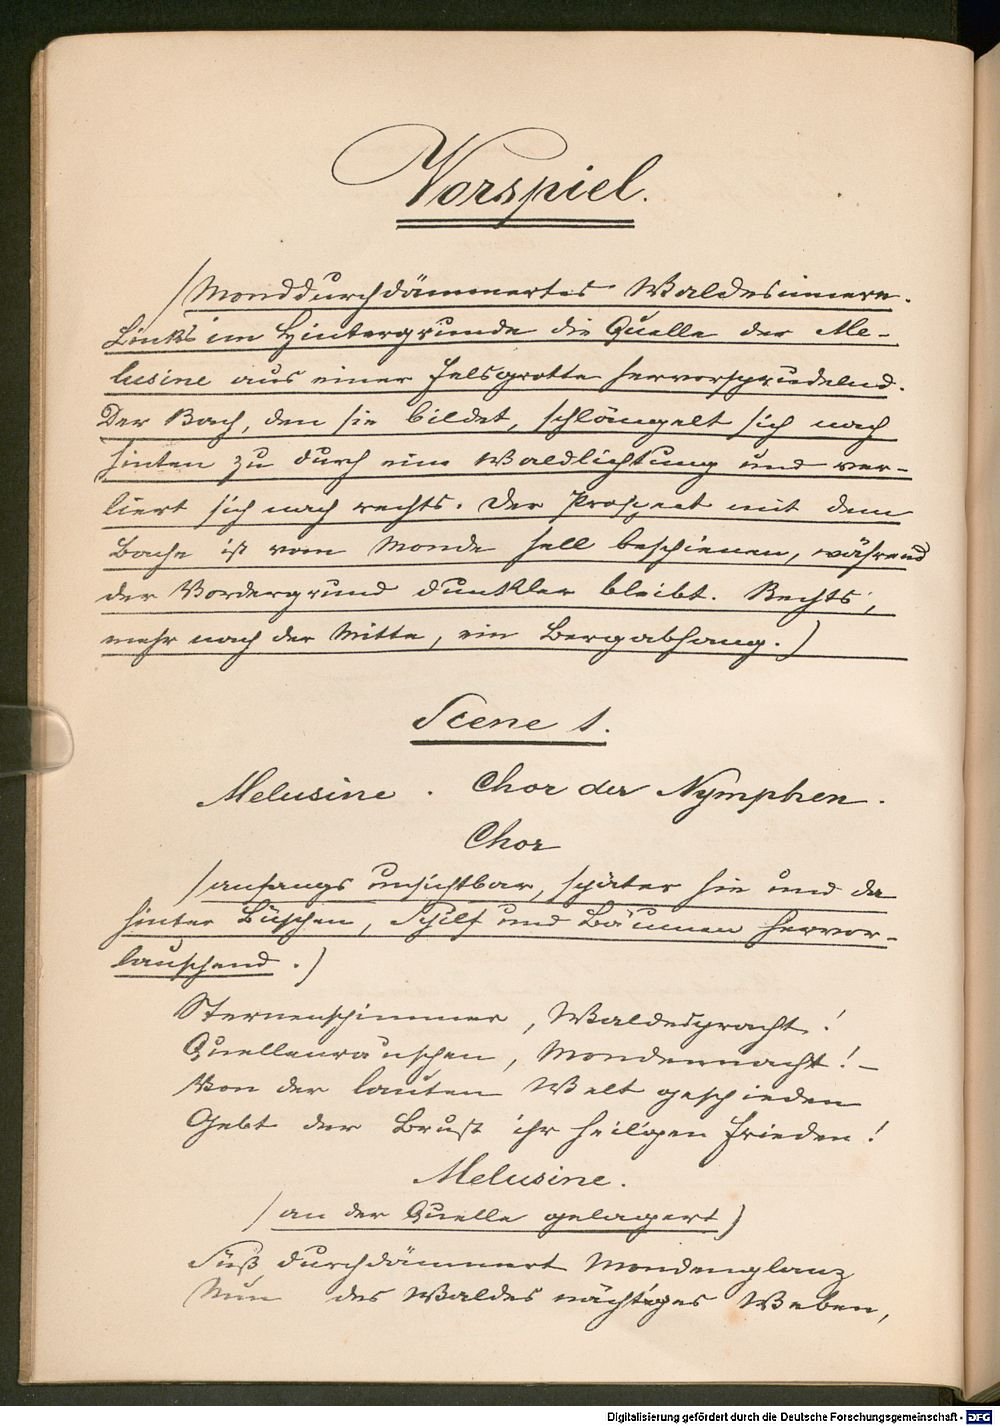 Vorspiel.
(Monddurchdämmertes Waldesinnere.
Links im Hintergrunde die Quelle der Me-
lusine aus einer Felsgrotte hervorsprudelnd.
Der Bach, den sie bildet, schlängelt sich nach
hinten zu durch eine Waldlichtung und ver-
liert sich nach rechts. Der Prospect mit dem
Bache ist vom Monde hell beschienen, während
der Vordergrund dunkler bleibt. Rechts,
mehr nach der Mitte, ein Bergabhang.)
Scene 1.
Melusine. Chor der Nymphen.
Chor
(anfangs unsichtbar, später hie und da
hinter Büschen, Schilf und Bäumen hervor-
lauschend.)
Sternenschimmer, Waldespracht!
Quellenrauschen, Mondennacht! –
Von der lauten Welt geschieden
Gebt der Brust ihr heiligen Frieden!
Melusine.
(an der Quelle gelagert)
Süß durchdämmert Mondenglanz
Nun des Waldes nächtiges Weben,
Digitalisierung gefördert durch die Deutsche Forschungsgemeinschaft - DFG